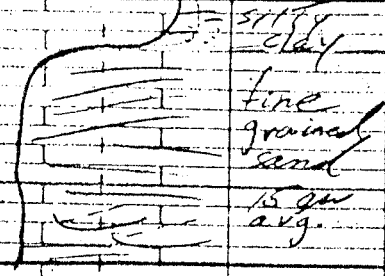 silty
clay
fine
grained
sand
avg.